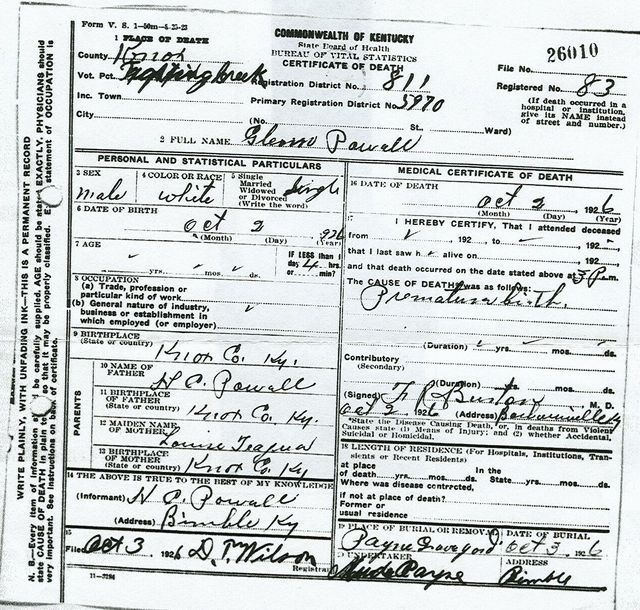 Form V. S. 1-50m-4-23-23
COMMONWEALTH OF KENTUCKY
State Board of Health
BUREAU OF VITAL STATISTICS
CERTIFICATE OF DEATH
26010
1 PLACE OF DEATH
County Knox
Vot. Pct. Fighting Creek
Inc. Town
City
Registration District No. 811
Primary Registration District No. 5970
(No. St. Ward)
File No.
Registered No. 83
(If death occurred in a
hospital or institution,
give its NAME instead
of street and number.)
2 FULL NAME Glenn Powall
PERSONAL AND STATISTICAL PARTICULARS
3 SEX
male
4 COLOR OR RACE
white
5 Single
Married
Widowed
or Divorced
(Write the word)
Single
6 DATE OF BIRTH
Oct 2 926
(Month) (Day) (Year)
7 AGE
yrs. mos. ds.
IF LESS than 1
day 4 hrs.
or min?
8 OCCUPATION
(a) Trade, profession or
particular kind of work
(b) General nature of industry,
business or establishment in
which employed (or employer)
9 BIRTHPLACE
(State or country)
Knox Co. Ky.
PARENTS
10 NAME OF
FATHER
H C. Powall
11 BIRTHPLACE
OF FATHER
(State or country)
Knox Co. Ky.
12 MAIDEN NAME
OF MOTHER
Louise Teague
13 BIRTHPLACE
OF MOTHER
(State or country)
Knox Co. Ky
14 THE ABOVE IS TRUE TO THE BEST OF MY KNOWLEDGE
(Informant) H C. Powall
(Address) Bimble Ky
15
Filed Oct 3 1926 D. M Wilson
Registrar
11-3184
MEDICAL CERTIFICATE OF DEATH
16 DATE OF DEATH
Oct 2, 1926
(Month) (Day) (Year)
17 I HEREBY CERTIFY, That I attended deceased
from , 192 , to , 192
that I last saw h alive on , 192
and that death occurred on the date stated above at 3 P.m.
The CAUSE OF DEATH was as follows:
Premature birth.
(Duration) yrs. mos. ds.
Contributory
(Secondary)
(Duration) yrs. mos. ds.
(Signed) F R Burton M. D.
Oct 2 1926 (Address) Barbourville Ky
*State the Disease Causing Death, or, in deaths from Violent
Causes state (1) Means of Injury; and (2) whether Accidental,
Suicidal or Homicidal.
18 LENGTH OF RESIDENCE (For Hospitals, Institutions, Tran-
sients or Recent Residents)
at place
of death yrs. mos. ds.
In the
State yrs. mos. ds.
Where was disease contracted,
if not at place of death?
Former or
usual residence
19 PLACE OF BURIAL OR REMOVAL
Payne Graveyard
DATE OF BURIAL
Oct 3, 1926
UNDERTAKER
Payne
ADDRESS
Bimble
WRITE PLAINLY, WITH UNFADING INK—THIS IS A PERMANENT RECORD
N. B.—Every item of information should be carefully supplied. AGE should be stated EXACTLY. PHYSICIANS should
state CAUSE OF DEATH in plain terms, so that it may be properly classified. Exact statement of OCCUPATION is
very important. See instructions on back of certificate.